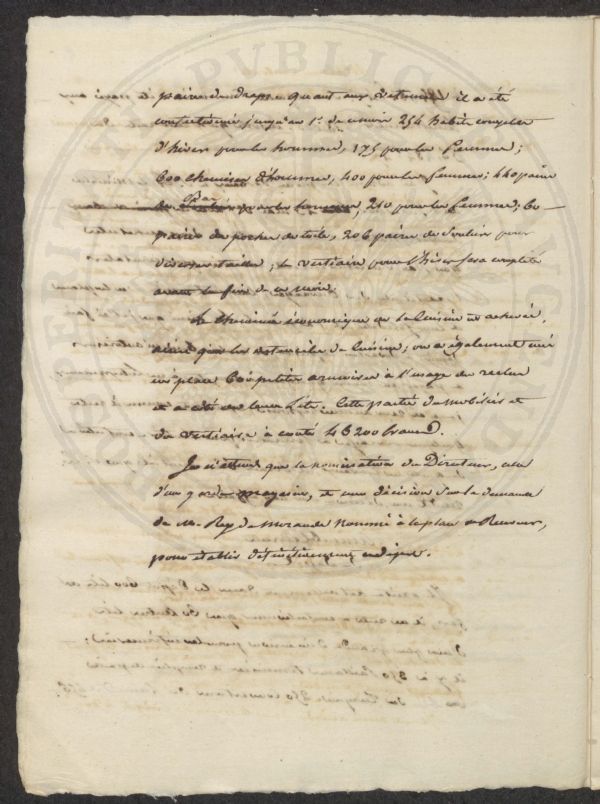 paires de draps. Quant aux vetements il a été
confectionné jusqu'au 1er de ce mois 254 habits complets
d'hiver pour les hommes, 175 pour les femmes;
600 chemises d'hommes, 400 pour les femmes; 440 paires
de Bas pour les hommes, 210 pour les femmes, 60
paires de poches de toile, 206 paires de Souliers pour
diverses tailles; le vestiaire pour l'hiver sera complété
avant la fin de ce mois.
La Cheminée économique de la Cuisine est achevée,
ainsi que les ustensiles de Cuisine; on a également mis
en place 60 petites armoires à l'usage des reclus
et a côté de leurs Lits. Cette partie du mobilier et
du vestiaire a couté 43200 francs.
Je n'attends que la nomination du Directeur, celle
d'un garde magasin, et une décision sur la demande
de M. Rey de Morande nommé à la place de Receveur,
pour établir définitivement
REPUBLIC